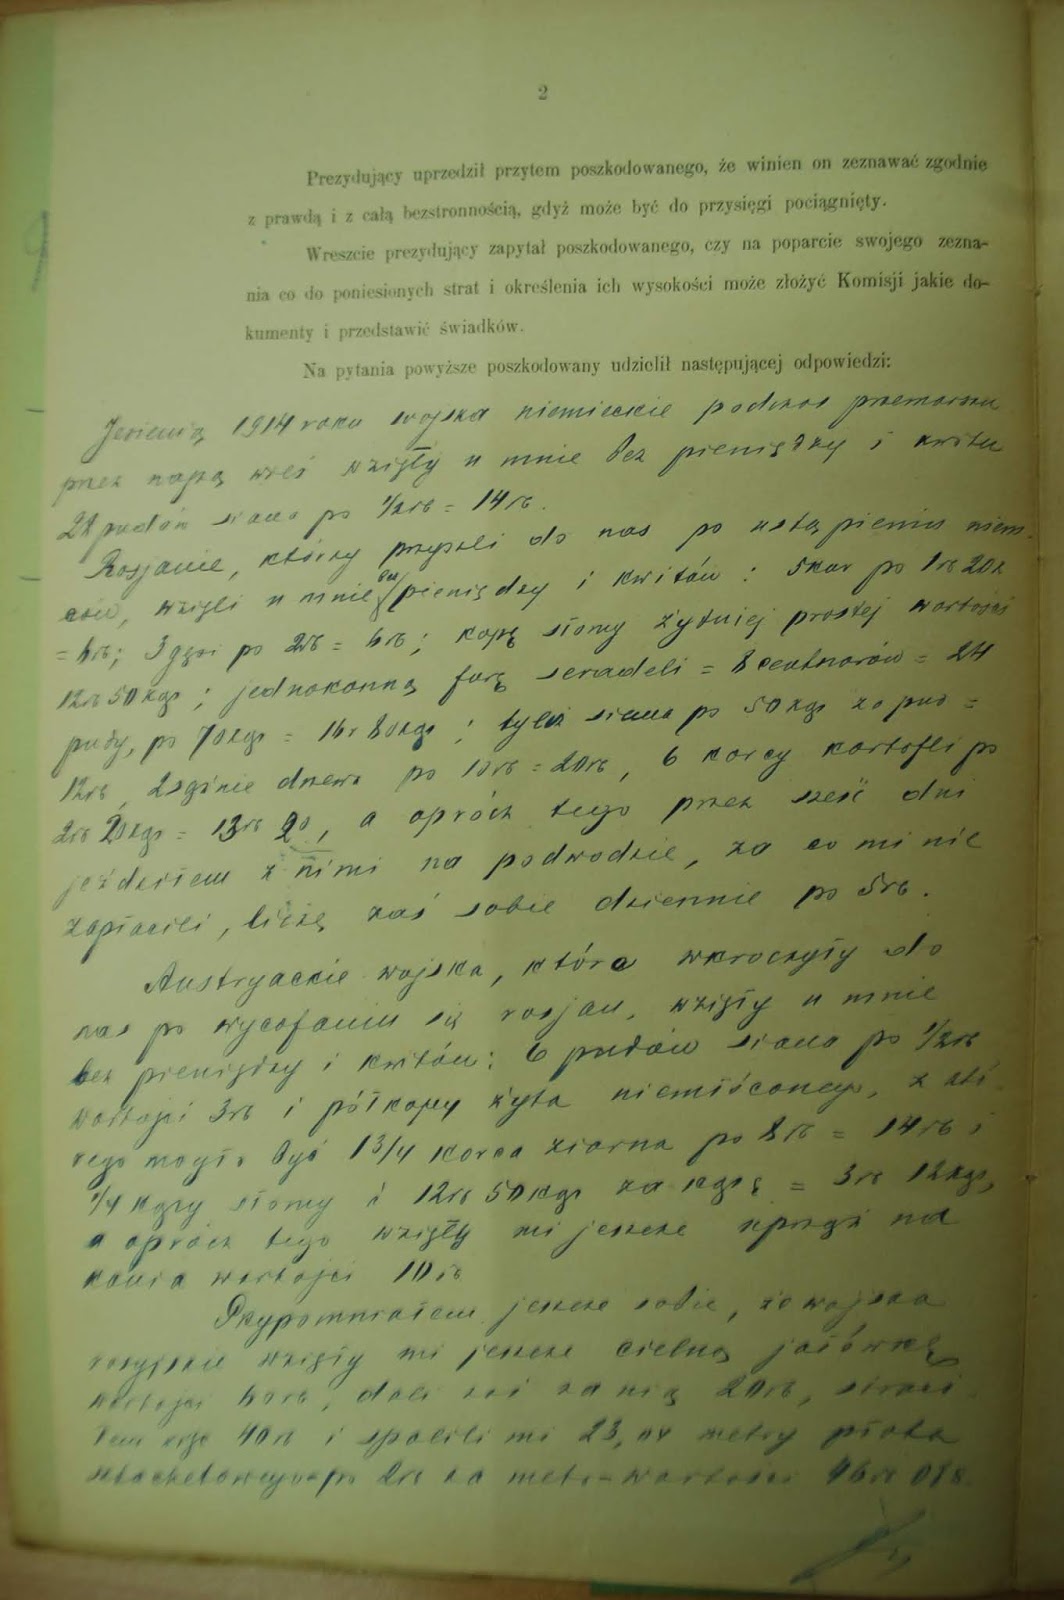 2
Prezydujący uprzedził przytem poszkodowanego, że winien on zeznawać zgodnie
z prawdą i z całą bezstronnością, gdyż może być do przysięgi pociągnięty.
Wreszcie prezydujący zapytał poszkodowanego, czy na poparcie swojego zezna-
nia co do poniesionych strat i określenia ich wysokości może złożyć Komisji jakie do-
kumenty i przedstawić świadków.
Na pytania powyższe poszkodowany udzielił następującej odpowiedzi:
Jesienią 1914 roku wojska niemieckie podczas przemarszu
przez naszą wieś wzięły u mnie bez pieniędzy i kwitu
28 pudów siana po 1/2 rb = 14 rb.
Rosjanie, którzy przyszli do nas po ustąpieniu niem-
ców, wzięli u mnie bez pieniędzy i kwitów: 5 kur po 1 rb 20 k
= 6 rb; 3 gęsi po 2 rb = 6 rb; kopę słomy żytniej prostej wartości
12 rb 50 kgs; jednokonną furę seradeli = 8 centnarów = 24
pudy, po 70 kgs = 16 r 80 kgs; tyleż siana po 50 kgs za pud =
12 rb, 2 sążnie drzewa po 10 rb = 20 rb, 6 korcy kartofli po
2 rb 20 kgs = 13 rb 20, a oprócz tego przez sześć dni
jeździłem z nimi na podwodzie, za co mi nie
zapłacili, liczę zaś sobie dziennie po 5 rb.
Austryackie wojska, które wkroczyły do
nas po wycofaniu się rosjan, wzięły u mnie
bez pieniędzy i kwitów: 6 pudów siana po 1/2 rb
wartości 3 rb i pół kopy żyta niemłóconego, z któ-
rego mogło być 1 3/4 korca ziarna po 8 rb = 14 rb i
1/4 kopy słomy i 12 rb 50 kgs za kopę = 3 rb 12 kgs,
a oprócz tego wzięły mi jeszcze uprząż na
konia wartości 10 rb
Przypomniałem jeszcze sobie, że wojska
rosyjskie wzięły mi jeszcze cielną jałówkę
wartości 60 rb, dali zaś za nią 20 rb, straci-
łem więc 40 rb i spalili mi 23,04 metry płota
sztachetowego po 2 rb za metr wartości 46 rb 08 k.